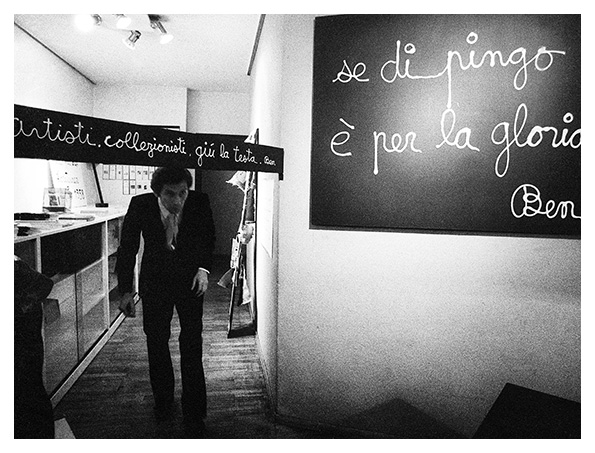 artisti, collezionisti, giú la testa. Ben
se dipingo
è per la gloria
Ben